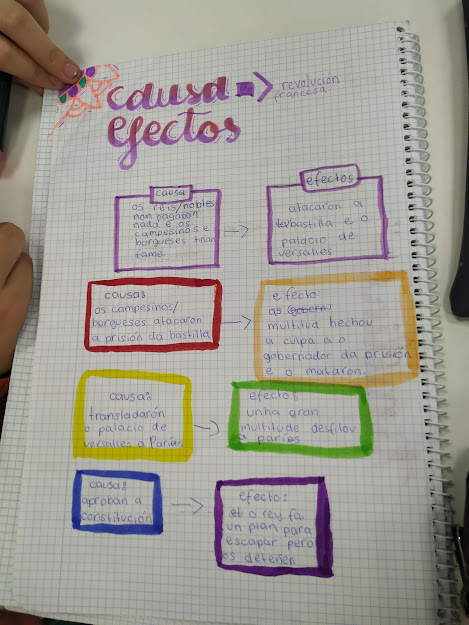 causa
efectos
revolución
francesa
causa
os reis/nobles
non pagaban
nada e os
campesinos e
burgueses tiñan
fame.
efectos
atacaron a
bastilla e o
palacio de
versalles
causas
os campesinos/
burgueses atacaron
a prisión da bastilla
efecto:
as (gobern)
multitud hechou
a culpa a o
gobernador da prisión
e o mataron.
causa:
transladarón
o palacio de
versalles a Parías
efecto:
unha gran
multitude desfilou
a parías
causa:
aproban a
constitución
efecto:
o rey fai
un plan para
escapar pero
os deteñen